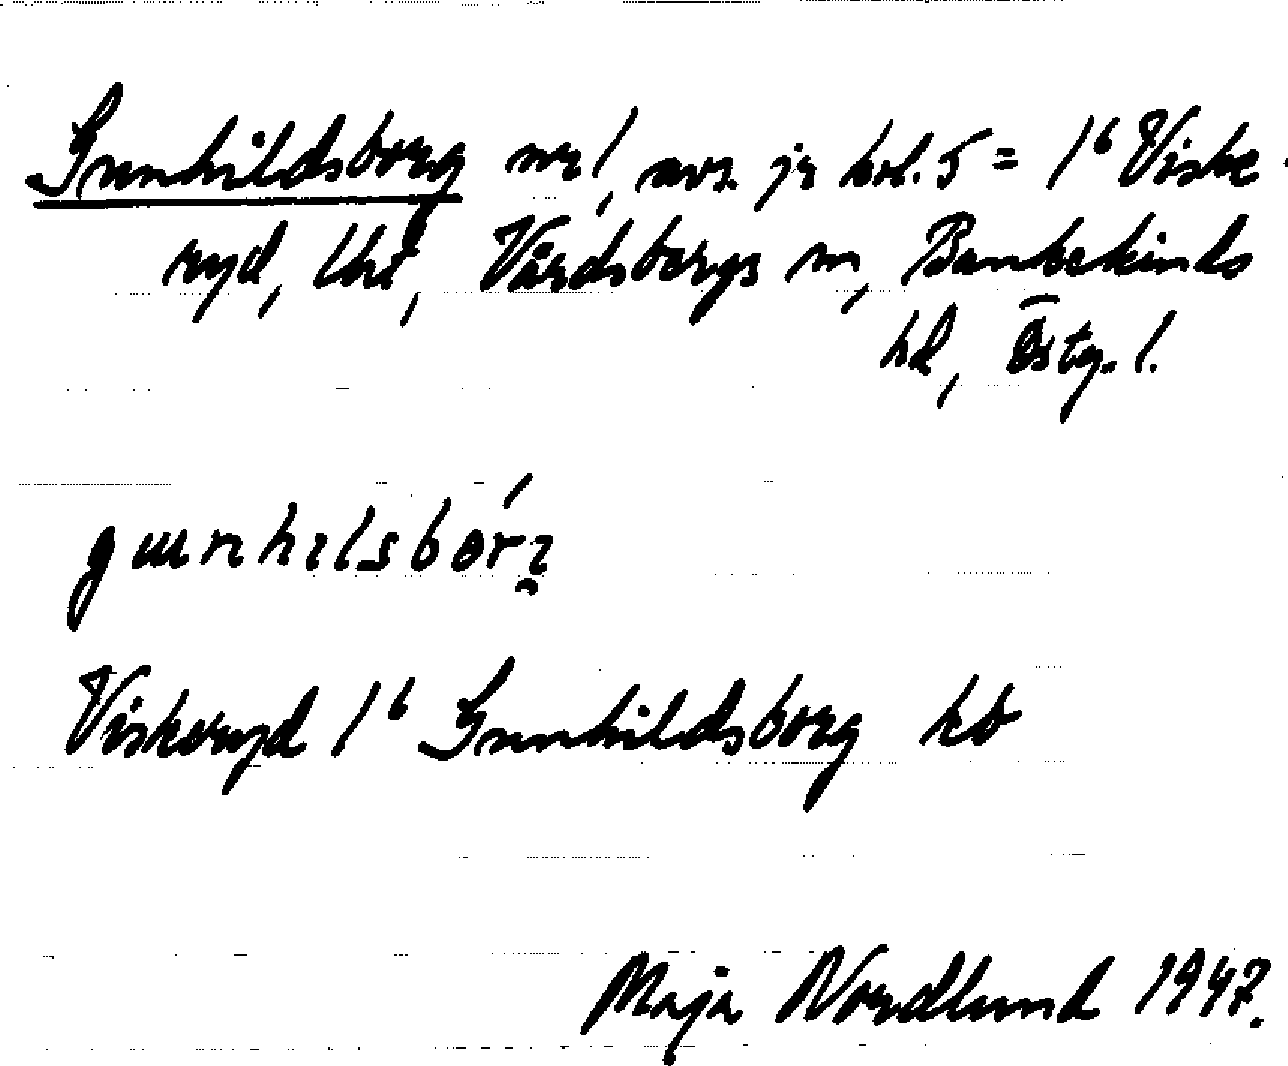 Gunnhildsborg nr 1, avs. jr kol. 5 = 1⁶ Viske-
ryd, Uni, Vårdsbergs sn, Bankekinds
hd, Östg. l.
gɯnhɪlsbór
Viskeryd 1⁶ Gunnhildsborg kb
Maja Nordlund 1947.